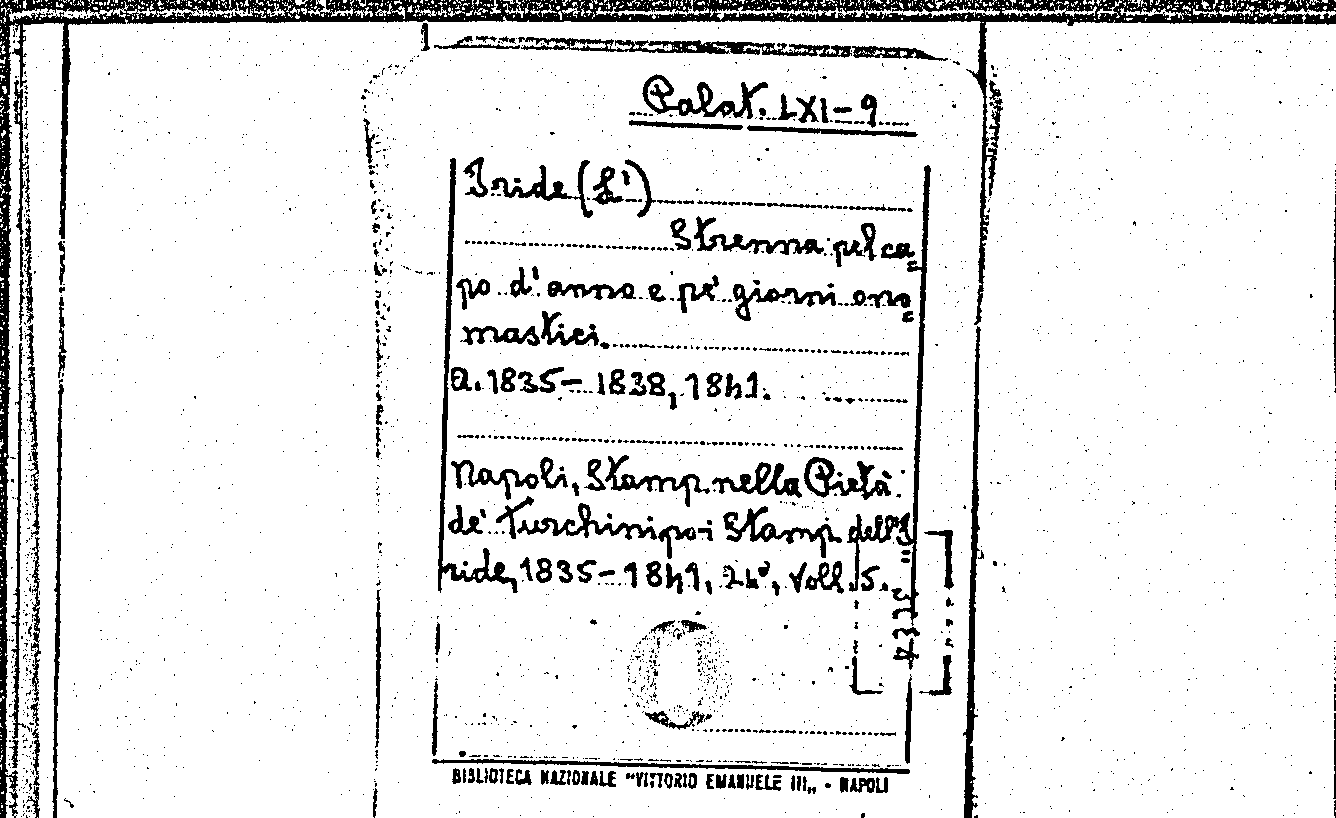 Palat. LXI-9
Iride (L')
Strenna pel ca=
po d'anno e pe' giorni ono=
mastici.
a. 1835-1838, 1841.
Napoli, Stamp. nella Pietà
de' Turchini, poi Stamp. dell'I=
ride, 1835-1841, 24°, Voll. 5.
BIBLIOTECA NAZIONALE "VITTORIO EMANUELE III„ - NAPOLI